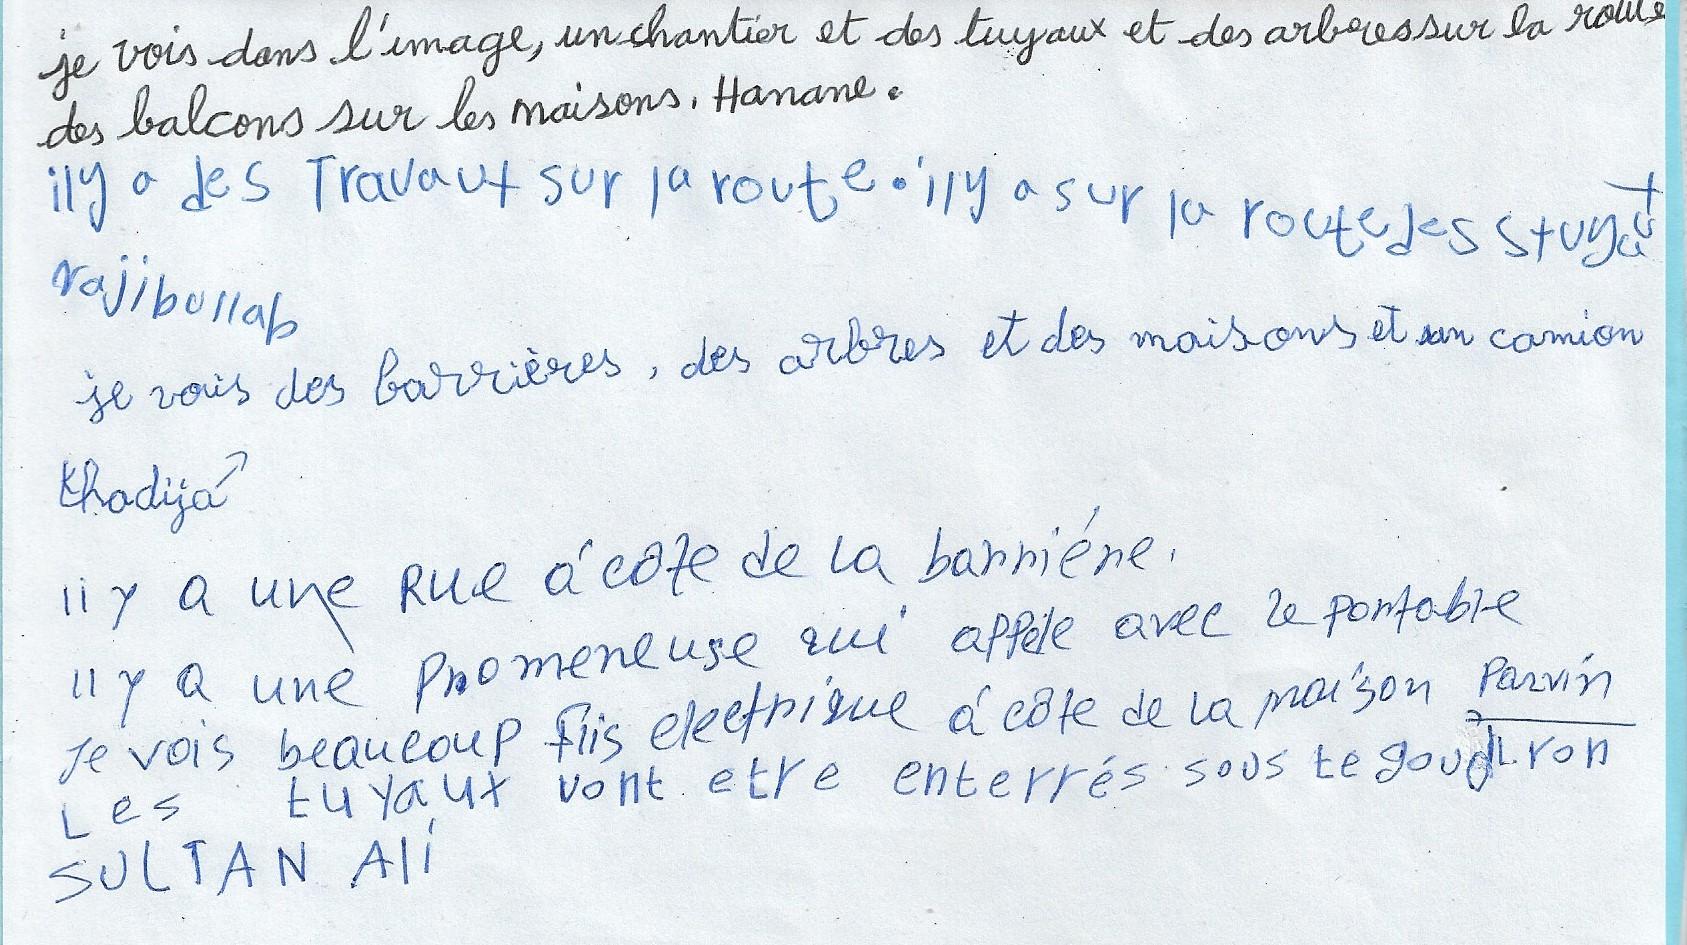 je vois dans l'image, un chantier et des tuyaux et des arbres sur la route
des balcons sur les maisons. Hanane.
il y a des Travaux sur la route. il y a sur la route des stuyaut
rajibullah
je vois des barrières, des arbres et des maisons et un camion
Khadija
il y a une Rue á côte de la barriére.
il y a une promeneuse qui appéle avec le portable
Je vois beaucoup fils electrique á côte de la maison Parvin
Les tuyaux vont etre enterrés sous le goudron
SULTAN Ali